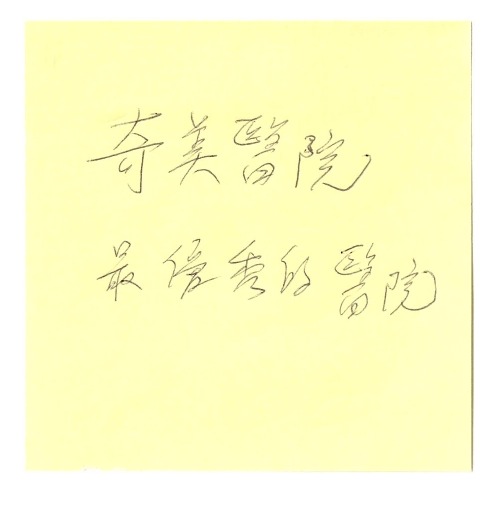 奇美醫院
最優秀的醫院